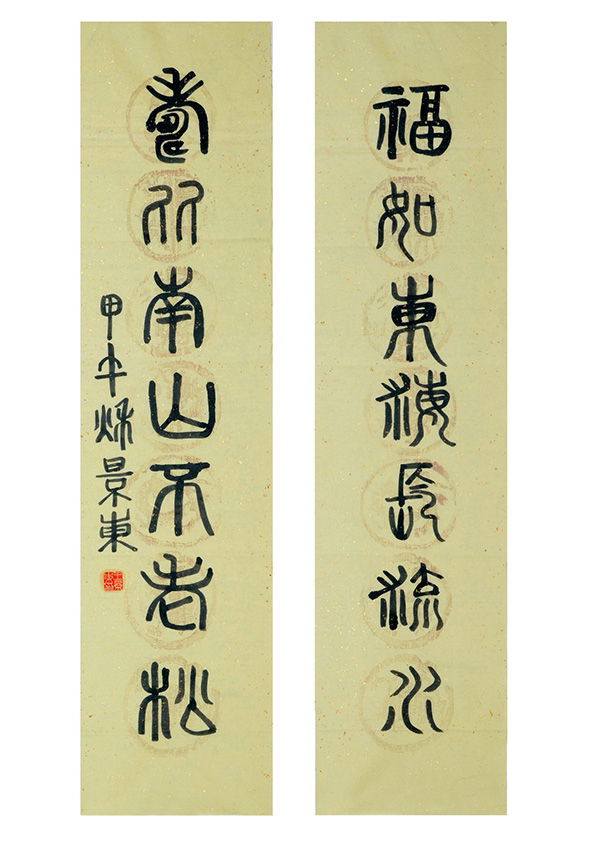 福如東海長流水
壽比南山不老松
甲午秋景東